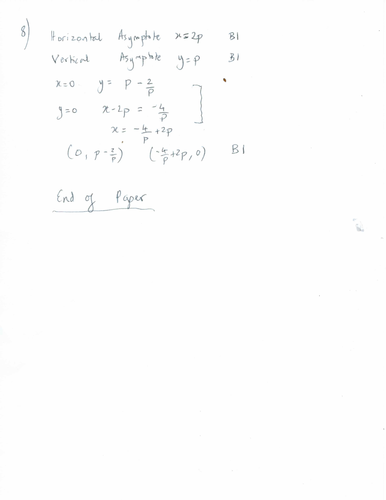 8) Horizontal Asymptote x=2p B1
Vertical Asymptote y=p B1
x=0 y= p - 2/p
y=0 x-2p = -4/p
x= -4/p +2p
(0, p-2/p) (-4/p+2p, 0) B1
End of Paper